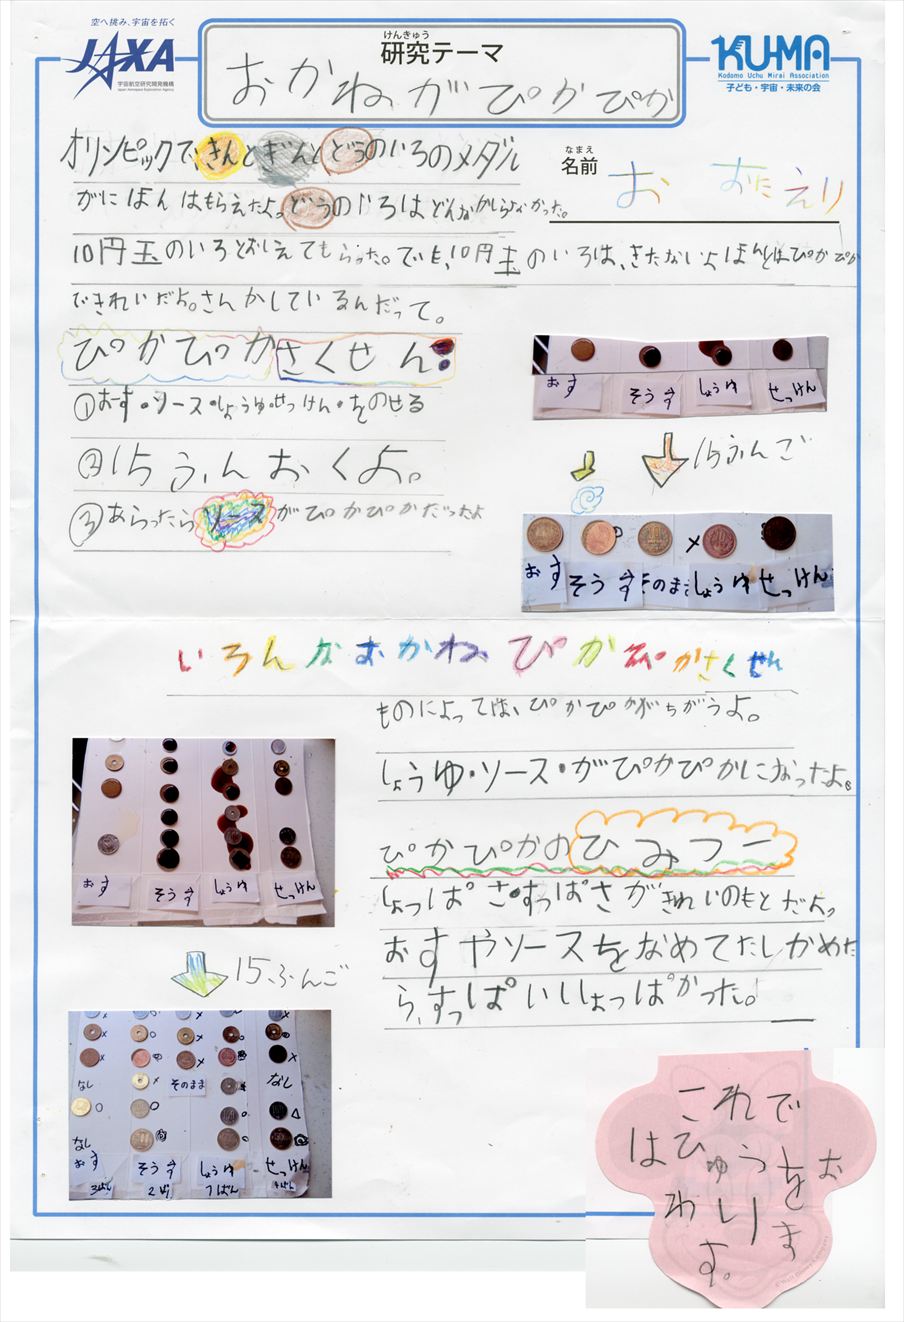 空へ挑み、宇宙を拓く
JAXA
宇宙航空研究開発機構
Japan Aerospace Exploration Agency
けんきゅう
研究テーマ
おかねがぴかぴか
KU-MA
Kodomo Uchu Mirai Association
子ども・宇宙・未来の会
オリンピックで、きんとぎんとどうのいろのメダル
なまえ
名前
お おにえり
がにほんはもらえたよ。どうのいろはどんなかしらなかった。
10円玉のいろとおしえてもらった。でも、10円玉のいろは、きたないよほんとはぴかぴか
できれいだよ。さんかしているんだって。
ぴかぴかさくせん
①おす・ソース・しょうゆ・せっけん・をのせる
②15ふんおくよ。
③あらったらソースがぴかぴかだったよ
おす そうす しょうゆ せっけん
15ふんご
おす そうす そのまま しょうゆ せっけん
いろんなおかねぴかぴかさくせん
ものによっては、ぴかぴかがちがうよ。
しょうゆ・ソース・がぴかぴかになったよ。
ぴかぴかのひみつー
しょっぱさ・すっぱさがきれいのもとだよ。
おすやソースをなめてたしかめた
ら、すっぱいしょっぱかった。
おす そうす しょうゆ せっけん
15ふんご
なし そのまま なし
なし
おす そうす しょうゆ せっけん
3ばん 2ばん 1ばん 4ばん
これで
はぴゅうをお
わります。